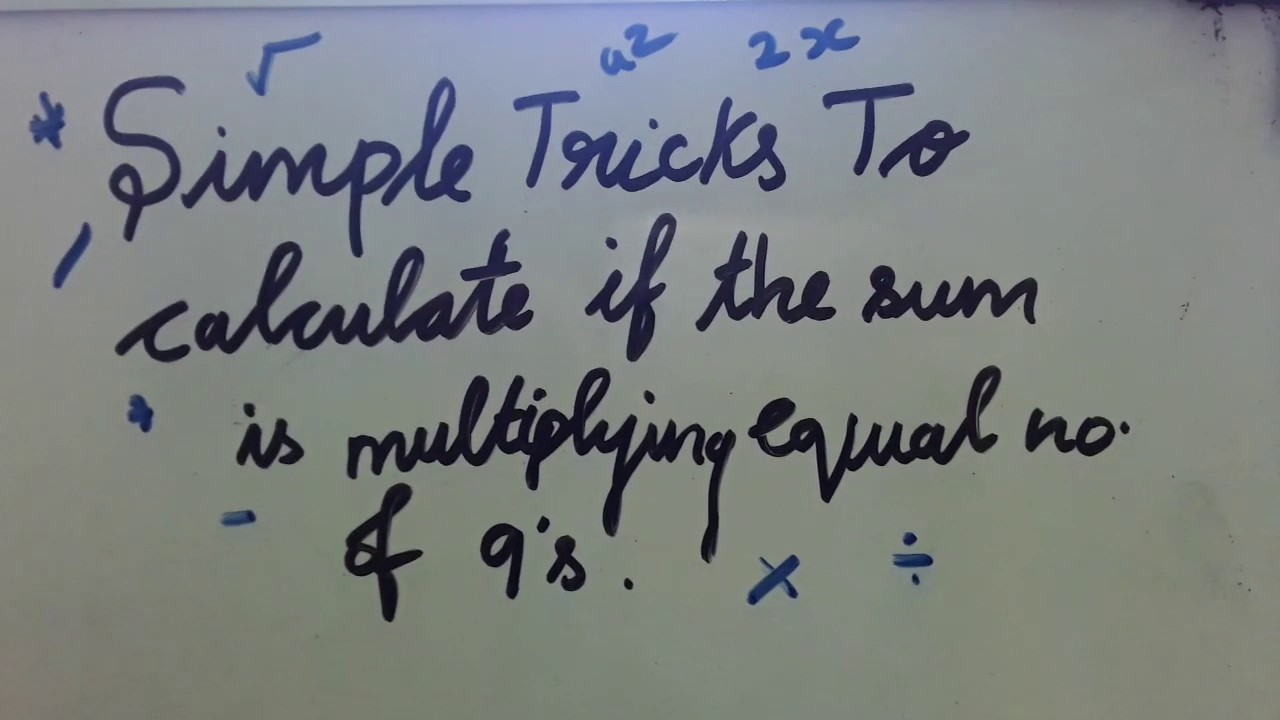 √ a² 2x
* Simple Tricks To
calculate if the sum
* is multiplying equal no.
- of 9's. × ÷